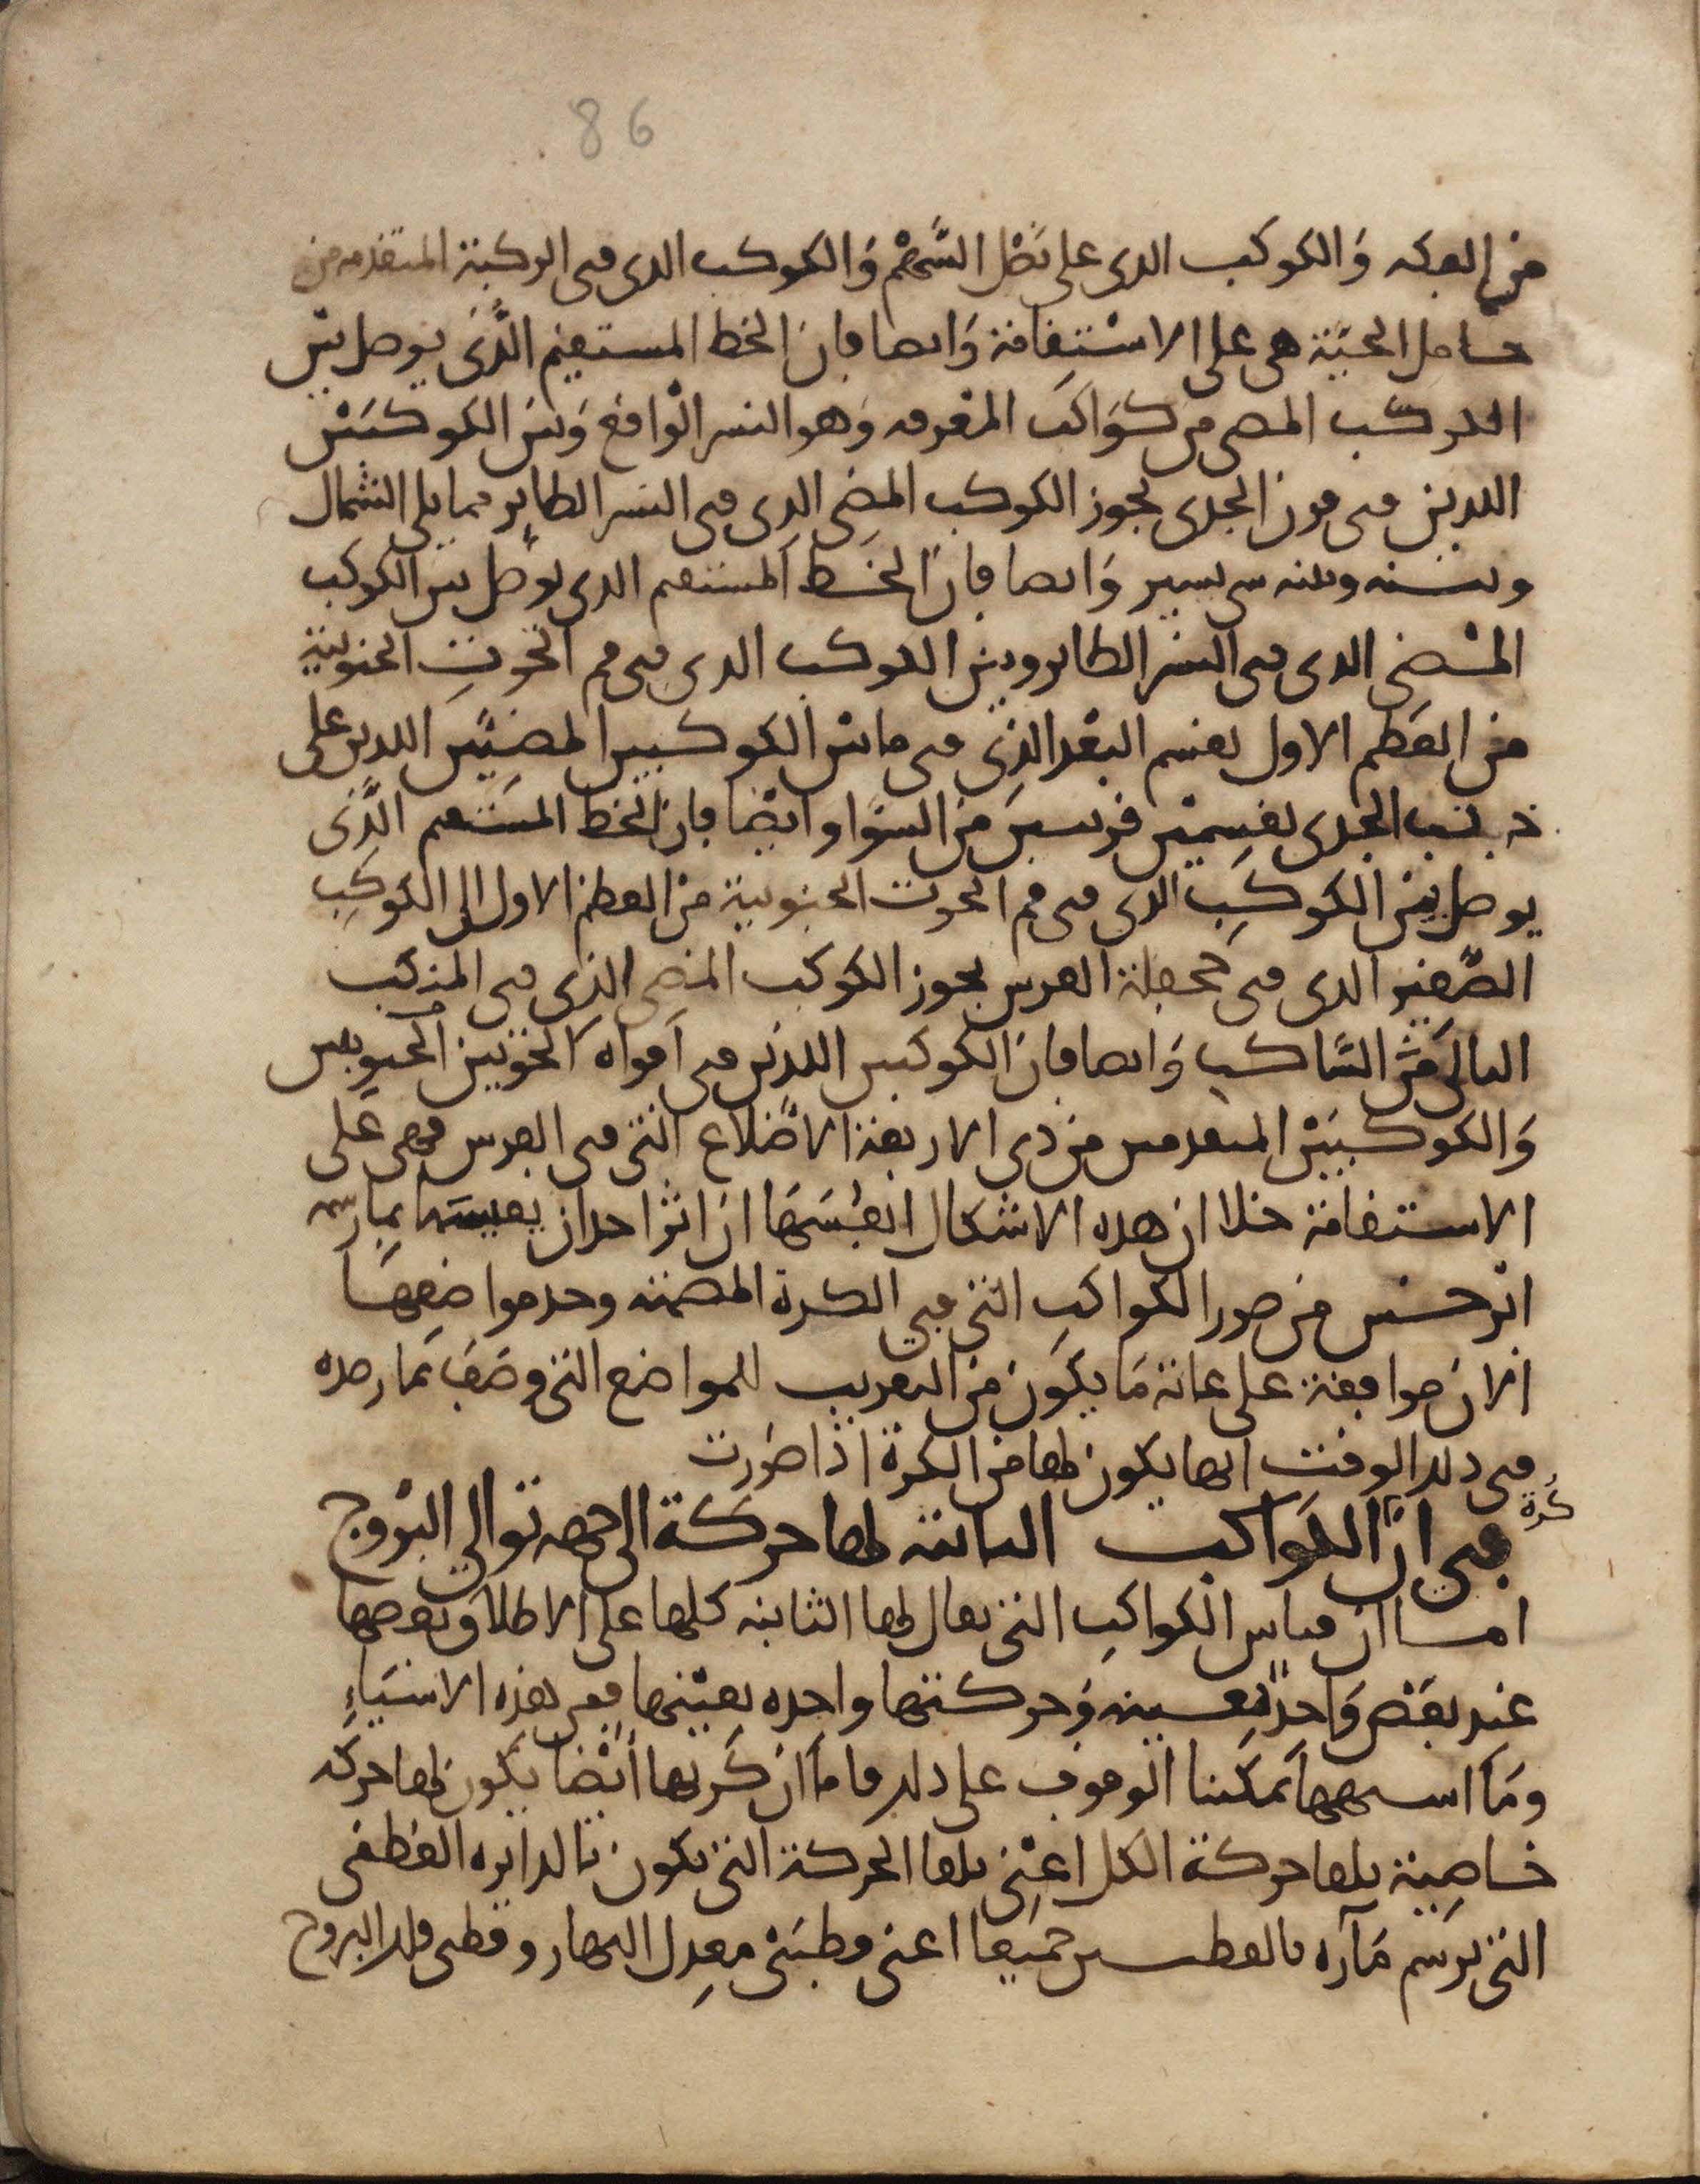 86
من الفكه وَالكوكب الدى على نَصْل السَّهْم وَالكوكب الدى فى الركبة المتقدمه من
حامل الحيَّة هى على الاسْتِقامة وَايصا فان الخط المستقيم الَّذى يوصل بين
الكوكب المصى من كوَاكب المعرفه وَهو النسر الوَاقع وَبين الكوكبَيْن
اللدين فى قرن الجدى يجوز الكوكب المضى الدى فى النسر الطاير مما يلى الشمال
وبينه وبينه سى يسير وَايصا فان الخط المستقيم الدى يوصل بين الكوكب
المضى الدى فى النسر الطاير وبين الكوكب الدى فى فم الحوت الجنوبية
من العظم الاول يقسم البعْد الذى فى ما بين الكوكبين المضيَّين اللدين على
ذنب الجدى بقسمين قريبين من السوَا وايْضا فان الخط المستقيم الَّذى
يوصل بين الكوكب الدى فى فم الحوت الجنوبية من العظم الاول الى الكوكب
الصَّغير الدى فى جحفلة الفرس يجوز الكوكب المضى الذى فى المنكب
التالى من السَّاكب وَايصا فان الكوكبين اللذين فى اَفواه الحوتين الجنوبيين
وَالكوكبيَيْن المتقدمين من ذى الاربعة الاضْلاع التى فى الفرس فهى عَلى
الاستقامة خلا ان هده الاشكال انفسَهَا ان اثر احد ان يقيسها بما رسمه
ابرخس من صور الكواكب التى فى الكرة المصمته وحد مواضعها
الان موافقة على غاية مَا يكون من التقريب للمواضع التى وصَفَ مما رصده
فى دلك الوقت انها يكون لها من الكرة اذا صُورت
كرة
فى ان الكَوَاكب الثابته لها حركة الى جهه توالى البُرُوج
اما ان قياس الكواكب التى يقال لها الثابته كلها على الاطلاق بعضها
عند بعض وَاحد بعينه وَحركتها واحده بعينها فمن هذه الاشيَاءِ
ومَا اشبهها يمكننا الوقوف على دلك فاما اَن كرتها ايْضا يكون لها حركه
خاصِية تلقا حركة الكل اعنى تلقا الحركة التى تكون بالدايره العظمى
التى ترسم مَآرّه بالقطبين جميعا اعنى قطبَىْ معدِل النهار وقطبى فلك البروج